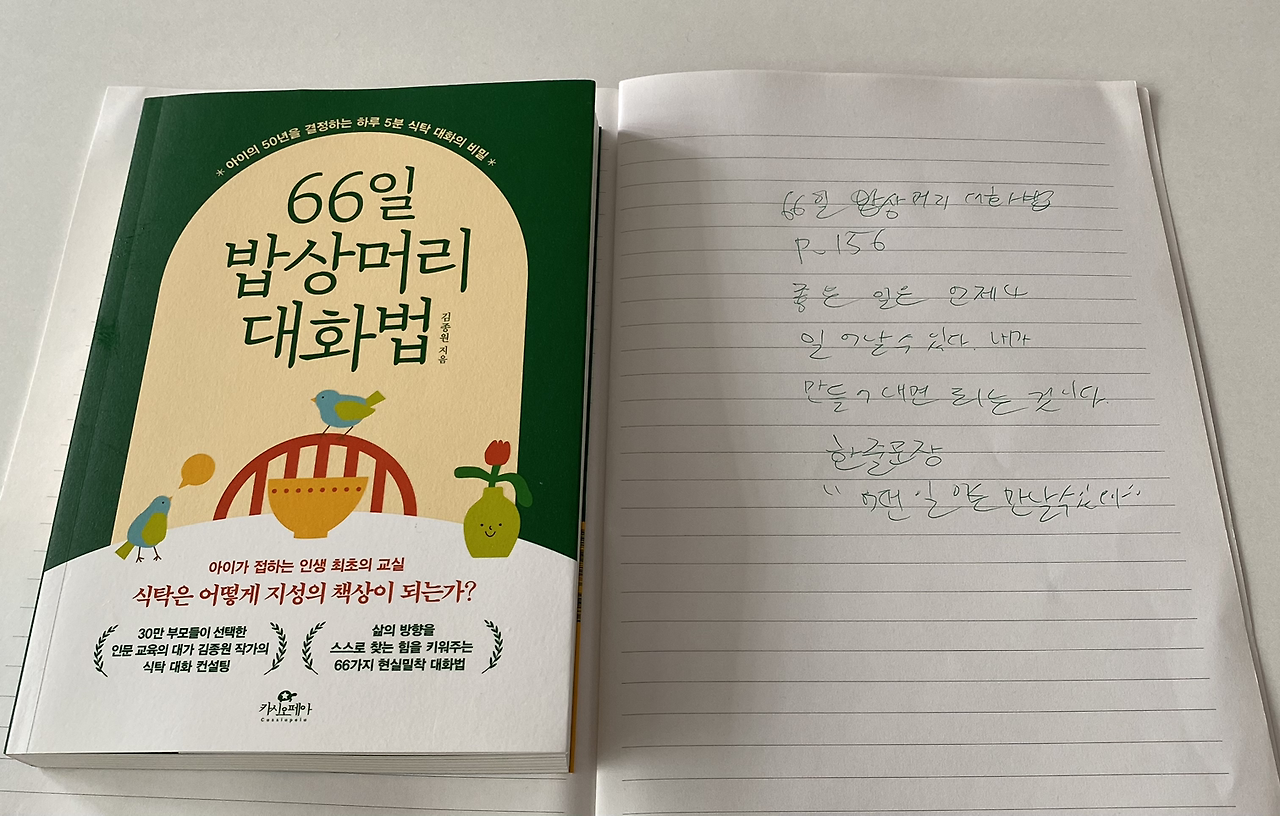 * 아이의 50년을 결정하는 하루 5분 식탁 대화의 비밀 *
66일
밥상머리
대화법
김종원 지음
아이가 접하는 인생 최초의 교실
식탁은 어떻게 지성의 책상이 되는가?
30만 부모들이 선택한
인문 교육의 대가 김종원 작가의
식탁 대화 컨설팅
삶의 방향을
스스로 찾는 힘을 키워주는
66가지 현실밀착 대화법
카시오페아
Cassiopeia
66일 밥상머리 대화법
P.156
좋은 일은 언제나
일어날 수 있다. 내가
만들어내면 되는 것이다.
한줄문장
일 만날수있어"